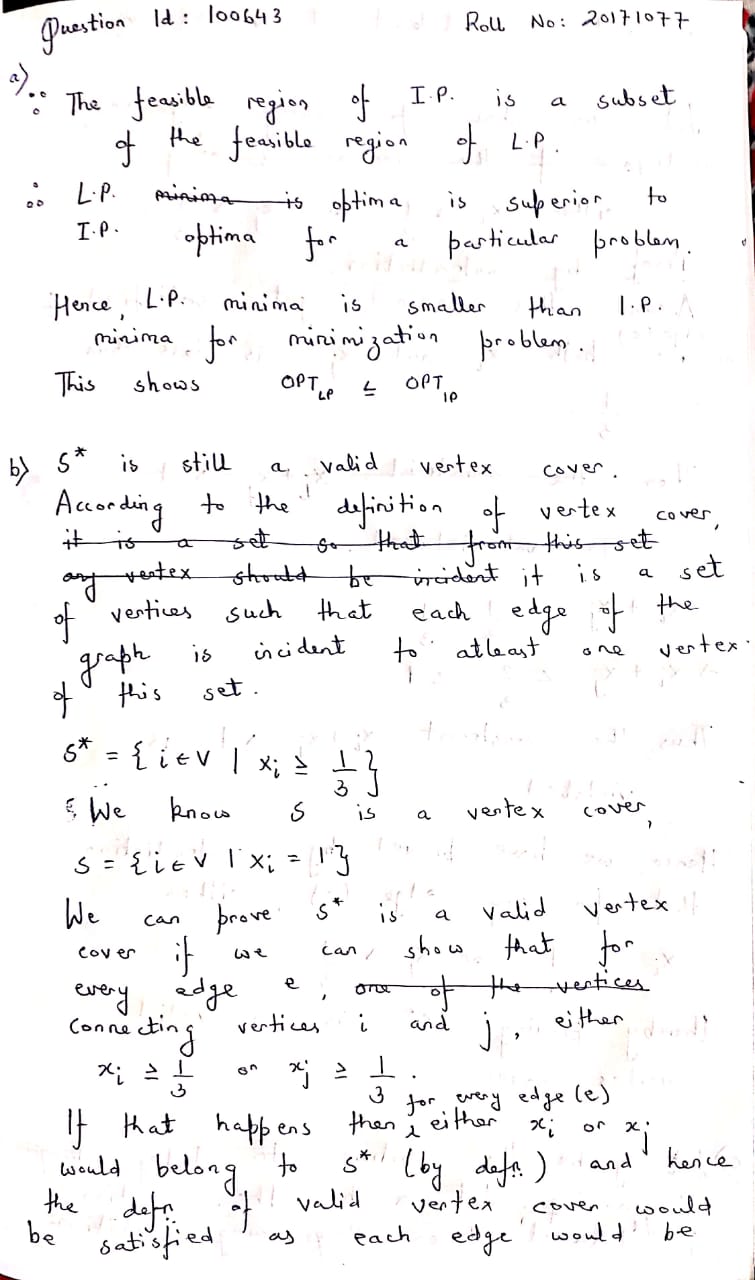 Question Id : 100643 Roll No: 20171077
a) ∵ The feasible region of I.P. is a subset
of the feasible region of L.P.
∴ L.P. minima is optima is superior to
I.P. optima for a particular problem.
Hence, L.P. minima is smaller than I.P.
minima for minimization problem.
This shows OPT_LP ≤ OPT_IP
b) S* is still a valid vertex cover.
According to the definition of vertex cover,
it is a set so that from this set
any vertex should be incident it is a set
of vertices such that each edge of the
graph is incident to atleast one vertex
of this set.
S* = { i ∈ V | xi ≥ 1/3 }
We know S is a vertex cover,
S = { i ∈ V | xi = 1 }
We can prove S* is a valid vertex
cover if we can show that for
every edge e, one of the vertices
connecting vertices i and j, either
xi ≥ 1/3 or xj ≥ 1/3 .
for every edge (e)
If that happens then either xi or xj
would belong to S* (by defn.) and hence
the defn of valid vertex cover would
be satisfied as each edge would be